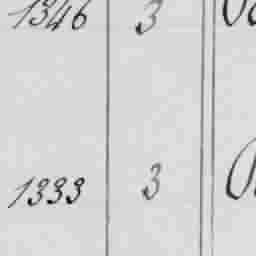 1346 3
1333 3